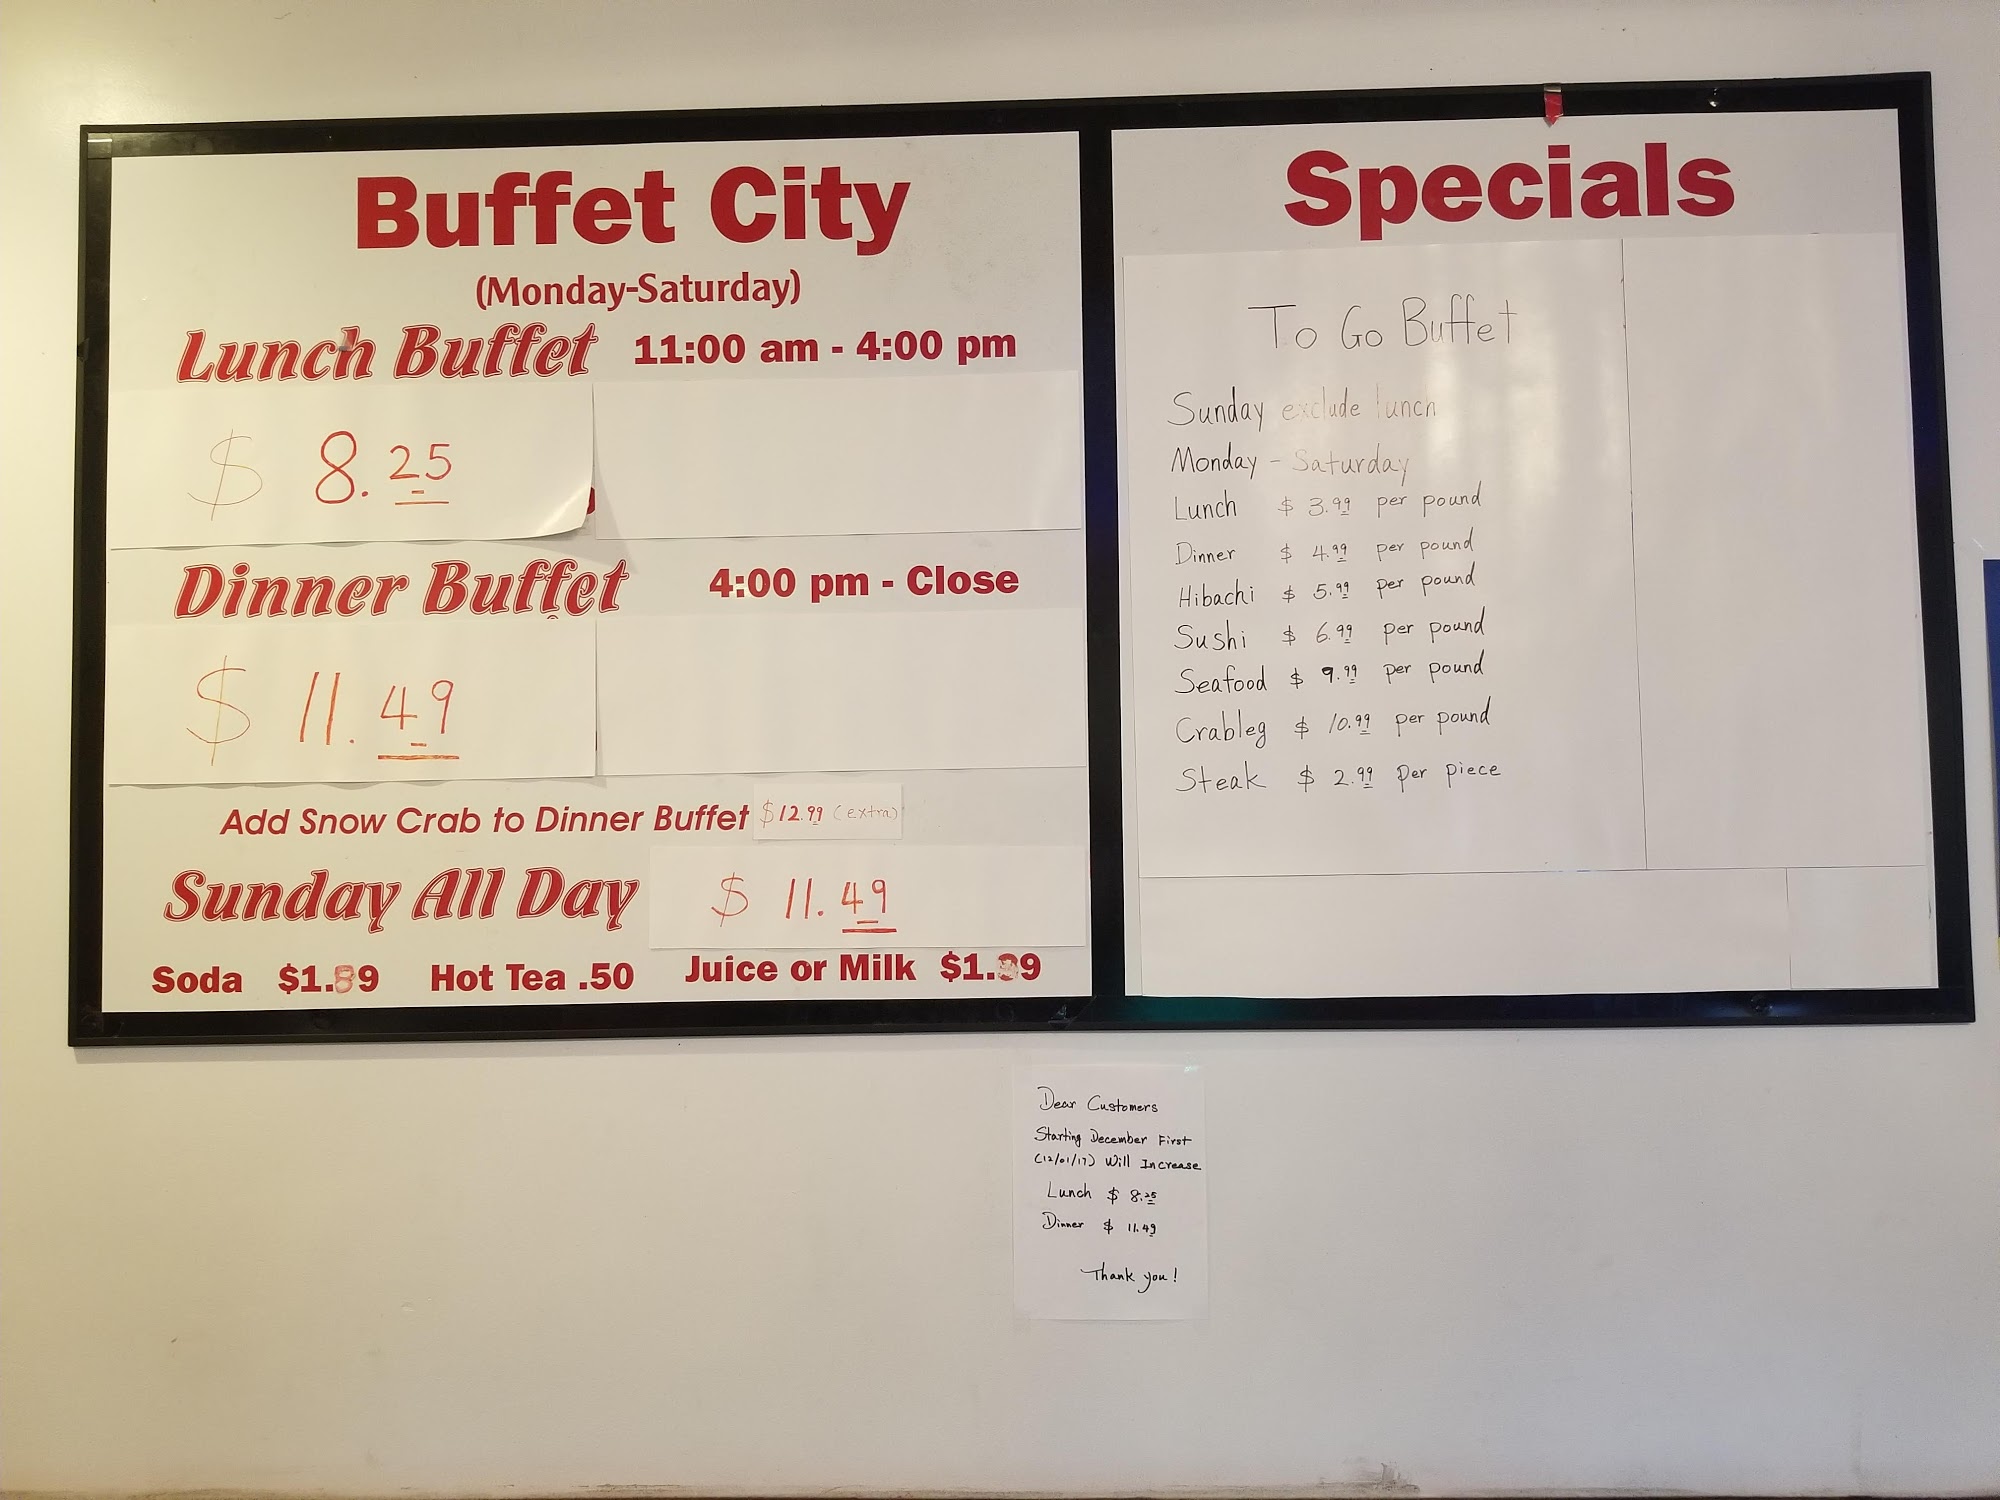 Buffet City
(Monday-Saturday)
Lunch Buffet 11:00 am - 4:00 pm
$ 8.25
Dinner Buffet 4:00 pm - Close
$ 11.49
Add Snow Crab to Dinner Buffet $12.99 (extra)
Sunday All Day $ 11.49
Soda $1.89 Hot Tea .50 Juice or Milk $1.99
Specials
To Go Buffet
Sunday exclude lunch
Monday - Saturday
Lunch $ 3.99 per pound
Dinner $ 4.99 per pound
Hibachi $ 5.99 per pound
Sushi $ 6.99 per pound
Seafood $ 9.99 per pound
Crableg $ 10.99 per pound
Steak $ 2.99 per piece
Dear Customers
Starting December First
(12/01/17) Will Increase
Lunch $ 8.25
Dinner $ 11.49
Thank you!